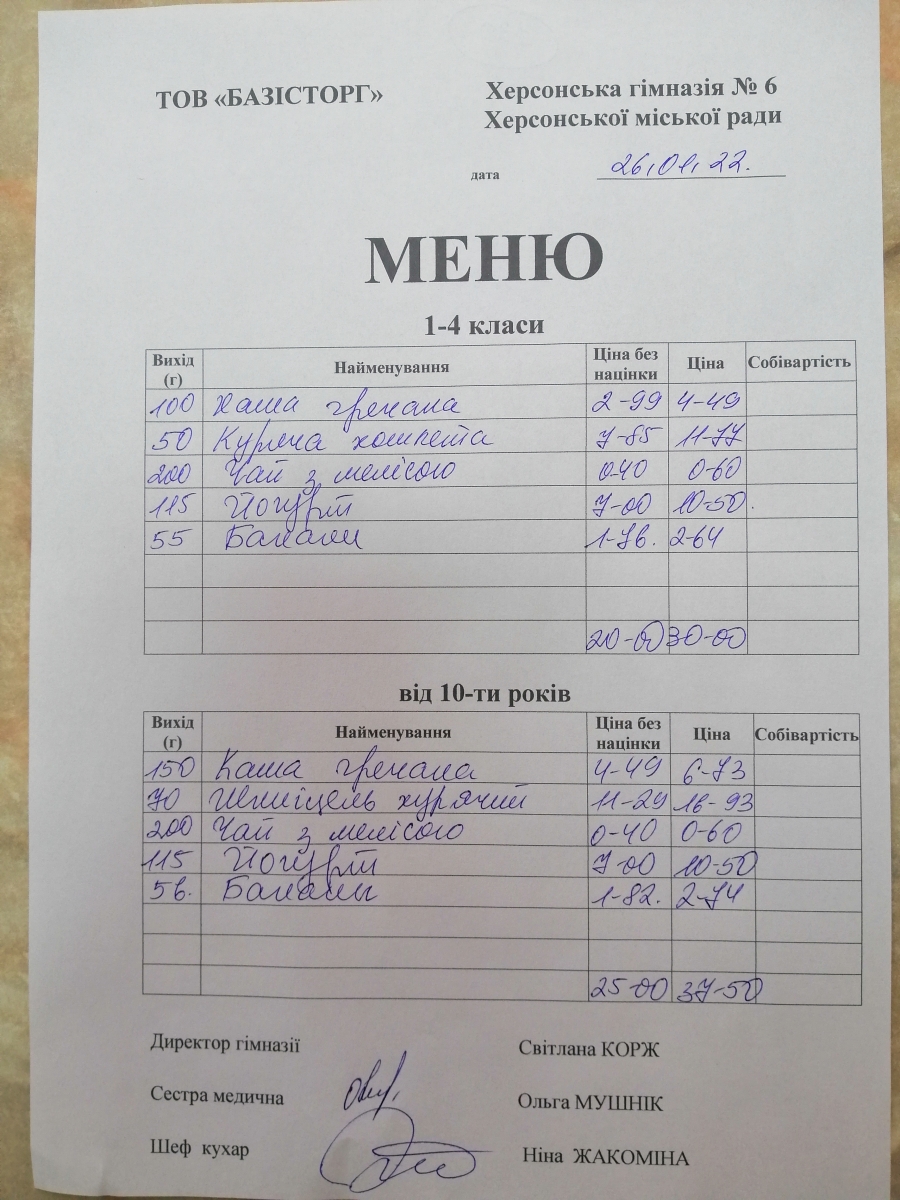 ТОВ «БАЗІСТОРГ»
Херсонська гімназія № 6
Херсонської міської ради
дата 26,01,22.
МЕНЮ
1-4 класи
Вихід (г) Найменування Ціна без націнки Ціна Собівартість
100 Каша гречана 2-99 4-49
50 Куряча котлета 7-85 11-77
200 Чай з мелісою 0-40 0-60
115 Йогурт 7-00 10-50.
55 Банани 1-76. 2-64
20-00 30-00
від 10-ти років
Вихід (г) Найменування Ціна без націнки Ціна Собівартість
150 Каша гречана 4-49 6-73
70 Шніцель курячий 11-29 16-93
200 Чай з мелісою 0-40 0-60
115 Йогурт 7-00 10-50
56. Банани 1-82. 2-74
25-00 37-50
Директор гімназії Світлана КОРЖ
Сестра медична Ольга МУШНІК
Шеф кухар Ніна ЖАКОМІНА